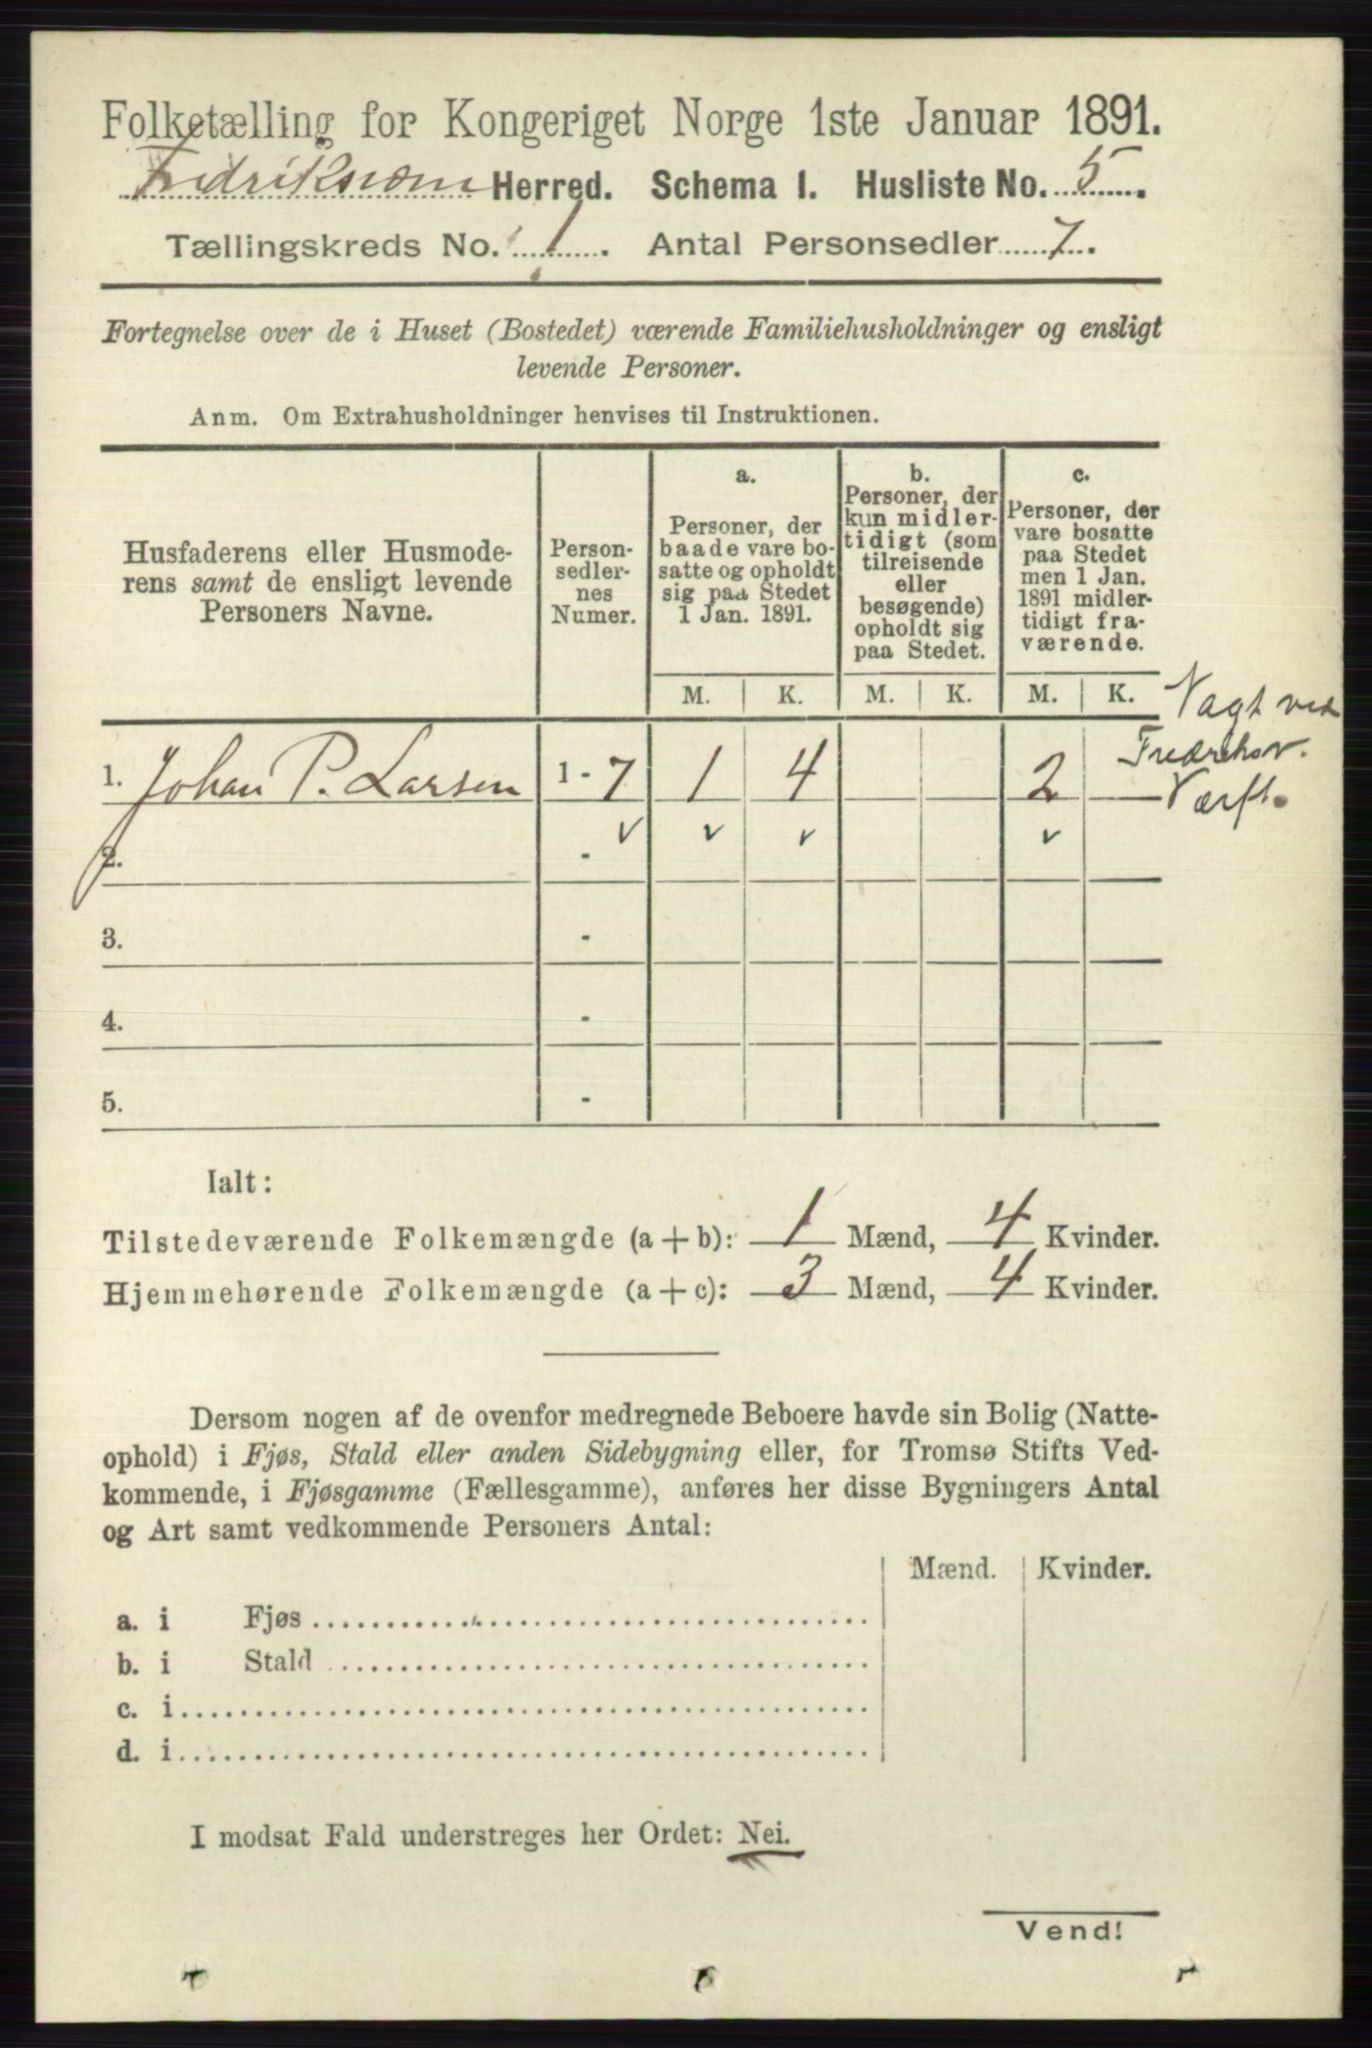 Folketælling for Kongeriget Norge 1ste Januar 1891.
Fedriksværn Herred. Schema I. Husliste No. 5.
Tællingskreds No. 1. Antal Personsedler 7.
Fortegnelse over de i Huset (Bostedet) værende Familiehusholdninger og ensligt
levende Personer.
Anm. Om Extrahusholdninger henvises til Instruktionen.
Husfaderens eller Husmode-
rens samt de ensligt levende
Personers Navne.
Person-
sedler-
nes
Numer.
a.
Personer, der
baade vare bo-
satte og opholdt
sig paa Stedet
1 Jan. 1891.
b.
Personer, der
kun midler-
tidigt (som
tilreisende
eller
besøgende)
opholdt sig
paa Stedet.
c.
Personer, der
vare bosatte
paa Stedet
men 1 Jan.
1891 midler-
tidigt fra-
værende.
M. K. M. K. M. K.
Vagt ved
Fredriksv.
Værft.
1. Johan P. Larsen 1 - 7 1 4 2
2. -
3. -
4. -
5. -
Ialt:
Tilstedeværende Folkemængde (a + b): 1 Mænd, 4 Kvinder.
Hjemmehørende Folkemængde (a + c): 3 Mænd, 4 Kvinder.
Dersom nogen af de ovenfor medregnede Beboere havde sin Bolig (Natte-
ophold) i Fjøs, Stald eller anden Sidebygning eller, for Tromsø Stifts Ved-
kommende, i Fjøsgamme (Fællesgamme), anføres her disse Bygningers Antal
og Art samt vedkommende Personers Antal:
Mænd. Kvinder.
a. i Fjøs
b. i Stald
c. i
d. i
I modsat Fald understreges her Ordet: Nei.
Vend!